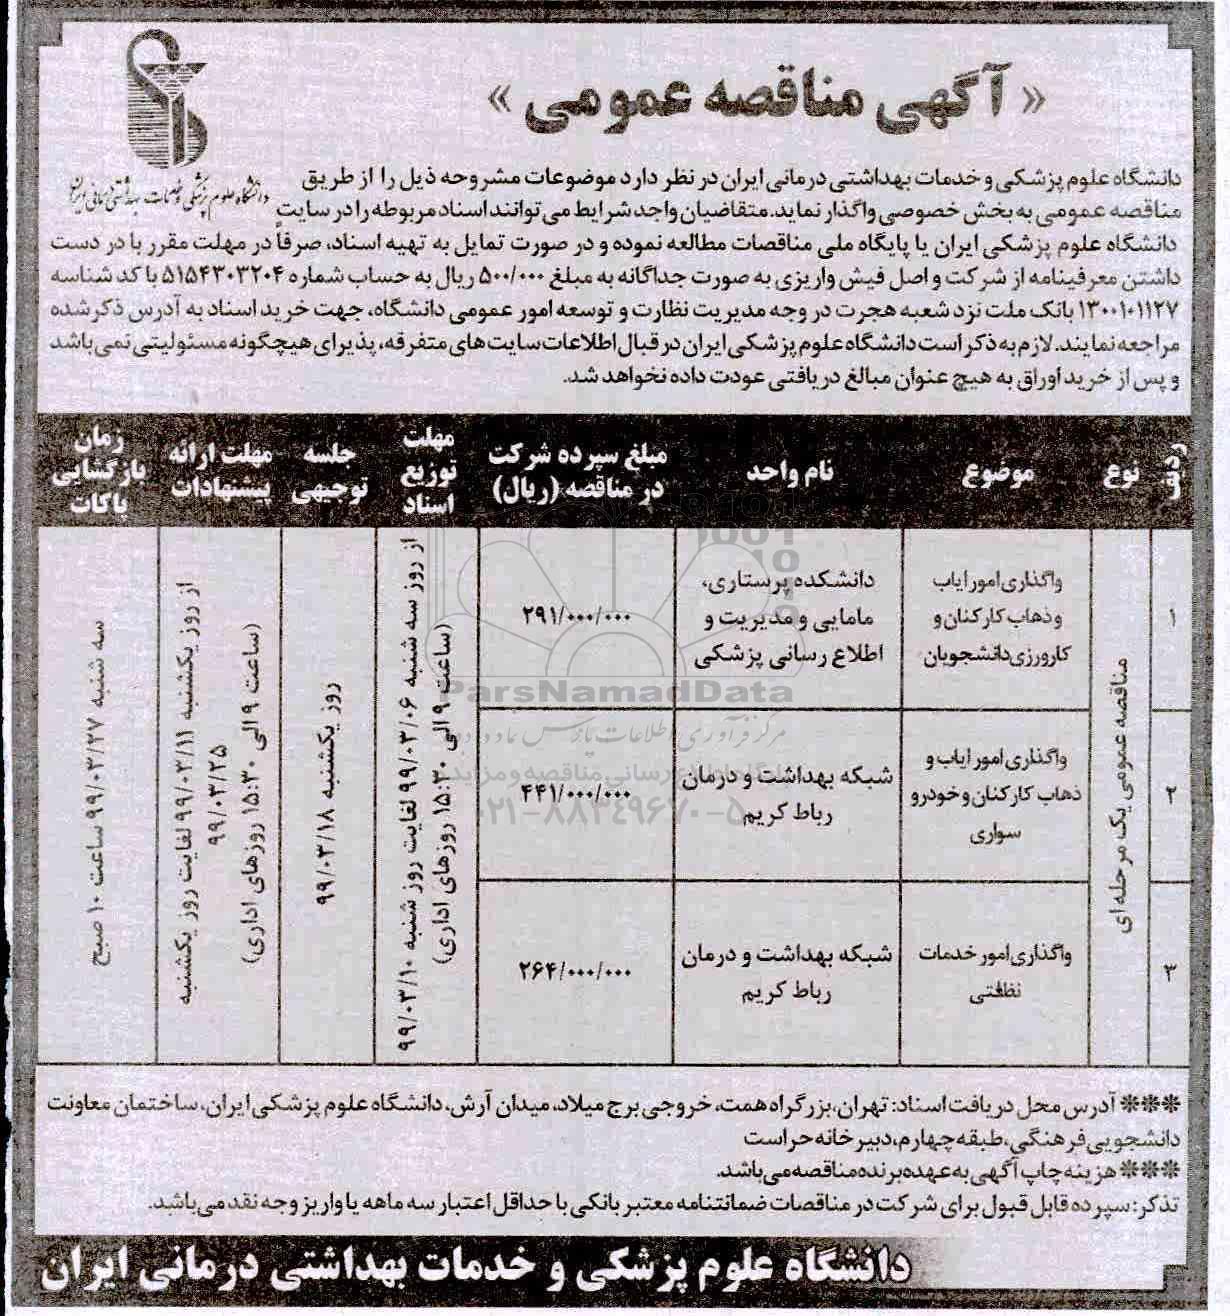 « آگهی مناقصه عمومی »
دانشگاه علوم پزشکی و خدمات بهداشتی درمانی ایران
دانشگاه علوم پزشکی و خدمات بهداشتی درمانی ایران در نظر دارد موضوعات مشروحه ذیل را از طریق
مناقصه عمومی به بخش خصوصی واگذار نماید. متقاضیان واجد شرایط می توانند اسناد مربوطه را در سایت
دانشگاه علوم پزشکی ایران یا پایگاه ملی مناقصات مطالعه نموده و در صورت تمایل به تهیه اسناد، صرفاً در مهلت مقرر با در دست
داشتن معرفینامه از شرکت و اصل فیش واریزی به صورت جداگانه به مبلغ ۵۰۰/۰۰۰ ریال به حساب شماره ۵۱۵۴۳۰۳۲۰۴ با کد شناسه
۱۳۰۰۱۰۱۱۲۷ بانک ملت نزد شعبه هجرت در وجه مدیریت نظارت و توسعه امور عمومی دانشگاه، جهت خرید اسناد به آدرس ذکر شده
مراجعه نمایند. لازم به ذکر است دانشگاه علوم پزشکی ایران در قبال اطلاعات سایت های متفرقه، پذیرای هیچگونه مسئولیتی نمی باشد
و پس از خرید اوراق به هیچ عنوان مبالغ دریافتی عودت داده نخواهد شد.
ردیف
نوع
موضوع
نام واحد
مبلغ سپرده شرکت
در مناقصه (ریال)
مهلت
توزیع
اسناد
جلسه
توجیهی
مهلت ارائه
پیشنهادات
زمان
بازگشایی
پاکات
۱
مناقصه عمومی یک مرحله ای
واگذاری امور ایاب
و ذهاب کارکنان و
کارورزی دانشجویان
دانشکده پرستاری،
مامایی و مدیریت و
اطلاع رسانی پزشکی
۲۹۱/۰۰۰/۰۰۰
از روز سه شنبه ۹۹/۰۳/۰۶ لغایت روز شنبه ۹۹/۰۳/۱۰
(ساعت ۹ الی ۱۵:۳۰ روزهای اداری)
روز یکشنبه ۹۹/۰۳/۱۸
از روز یکشنبه ۹۹/۰۳/۱۱ لغایت روز یکشنبه
۹۹/۰۳/۲۵
(ساعت ۹ الی ۱۵:۳۰ روزهای اداری)
سه شنبه ۹۹/۰۳/۲۷ ساعت ۱۰ صبح
۲
واگذاری امور ایاب و
ذهاب کارکنان و خودرو
سواری
شبکه بهداشت و درمان
رباط کریم
۴۴۱/۰۰۰/۰۰۰
۳
واگذاری امور خدمات
نظافتی
شبکه بهداشت و درمان
رباط کریم
۲۶۴/۰۰۰/۰۰۰
ParsNamadData
۰۲۱-۸۸۳۴۹۶۷۰-۵
*** آدرس محل دریافت اسناد: تهران، بزرگراه همت، خروجی برج میلاد، میدان آرش، دانشگاه علوم پزشکی ایران، ساختمان معاونت
دانشجویی فرهنگی، طبقه چهارم، دبیرخانه حراست
*** هزینه چاپ آگهی به عهده برنده مناقصه می باشد.
تذکر: سپرده قابل قبول برای شرکت در مناقصات ضمانتنامه معتبر بانکی با حداقل اعتبار سه ماهه یا واریز وجه نقد می باشد.
دانشگاه علوم پزشکی و خدمات بهداشتی درمانی ایران